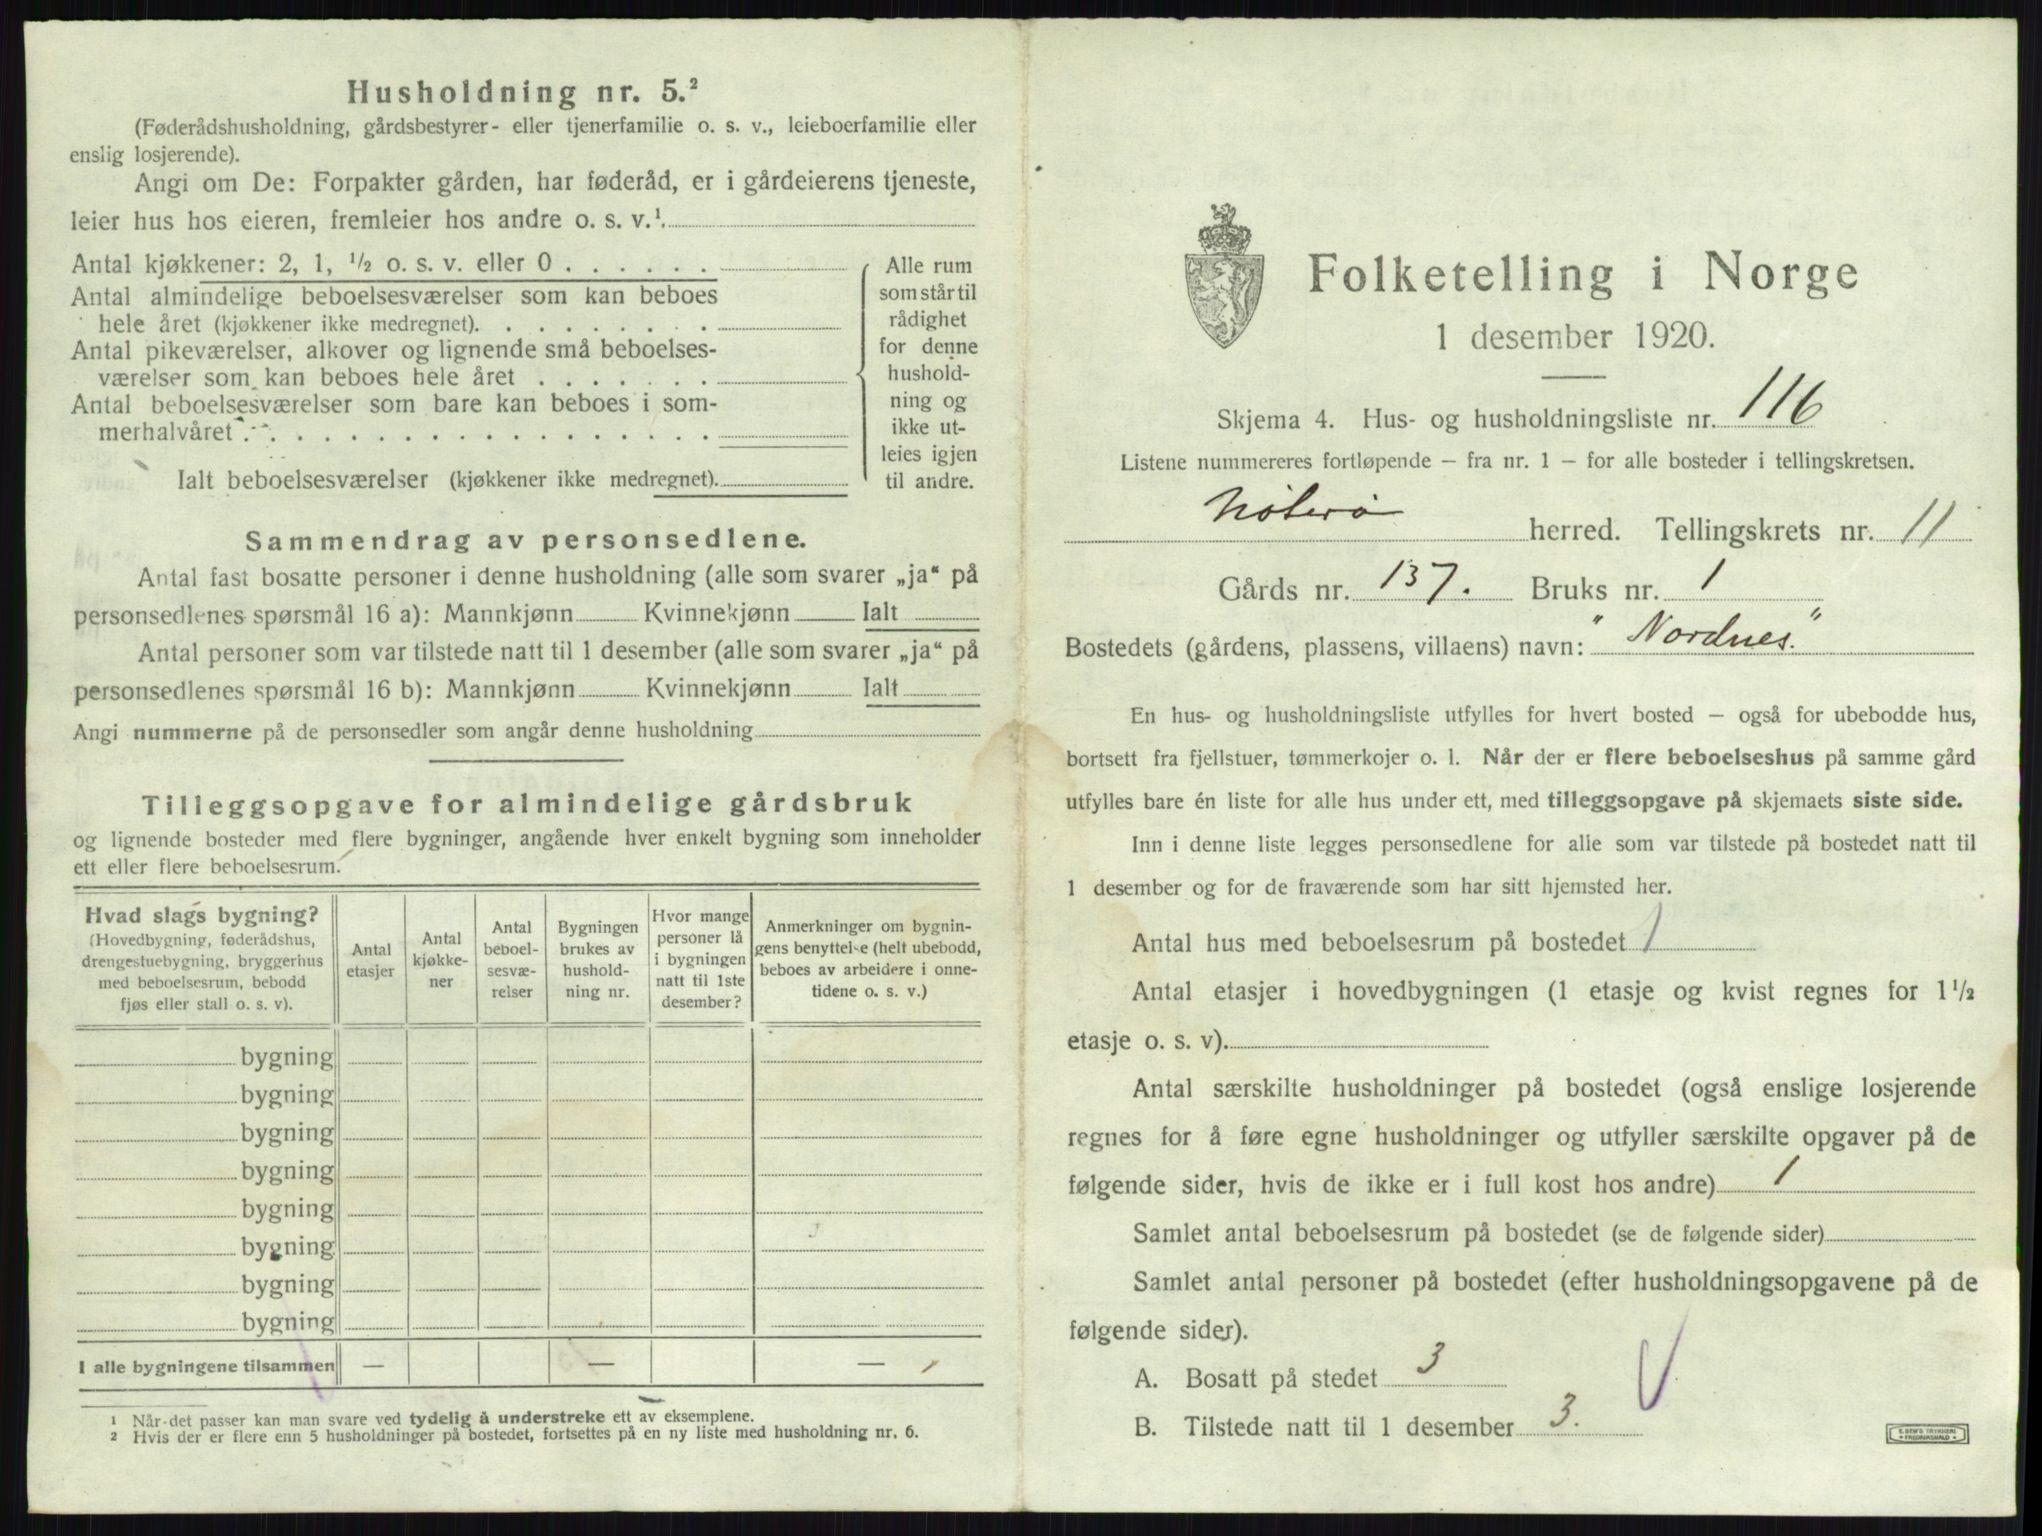 Husholdning nr. 5.²
(Føderådshusholdning, gårdsbestyrer- eller tjenerfamilie o. s. v., leieboerfamilie eller
enslig losjerende).
Angi om De: Forpakter gården, har føderåd, er i gårdeierens tjeneste,
leier hus hos eieren, fremleier hos andre o. s. v.¹
Antal kjøkkener: 2, 1, ½ o. s. v. eller 0 . . . . . .
Antal almindelige beboelsesværelser som kan beboes
hele året (kjøkkener ikke medregnet). . . . . . . .
Antal pikeværelser, alkover og lignende små beboelses-
værelser som kan beboes hele året . . . . . . .
Antal beboelsesværelser som bare kan beboes i som-
merhalvåret . . . . . . . . . . . . . . . . . .
Ialt beboelsesværelser (kjøkkener ikke medregnet).
Alle rum
som står til
rådighet
for denne
hushold-
ning og
ikke ut-
leies igjen
til andre.
Sammendrag av personsedlene.
Antal fast bosatte personer i denne husholdning (alle som svarer „ja“ på
personsedlenes spørsmål 16 a): Mannkjønn Kvinnekjønn Ialt
Antal personer som var tilstede natt til 1 desember (alle som svarer „ja“ på
personsedlenes spørsmål 16 b): Mannkjønn Kvinnekjønn Ialt
Angi nummerne på de personsedler som angår denne husholdning
Tilleggsopgave for almindelige gårdsbruk
og lignende bosteder med flere bygninger, angående hver enkelt bygning som inneholder
ett eller flere beboelsesrum.
Hvad slags bygning?
(Hovedbygning, føderådshus,
drengestuebygning, bryggerhus
med beboelsesrum, bebodd
fjøs eller stall o. s. v).
Antal
etasjer
Antal
kjøkke-
ner
Antal
beboel-
sesvæ-
relser
Bygningen
brukes av
hushold-
ning nr.
Hvor mange
personer lå
i bygningen
natt til 1ste
desember?
Anmerkninger om bygnin-
gens benyttelse (helt ubebodd,
beboes av arbeidere i onne-
tidene o. s. v.)
bygning
bygning
bygning
bygning
bygning
bygning
bygning
bygning
I alle bygningene tilsammen — — —
¹ Når det passer kan man svare ved tydelig å understreke ett av eksemplene.
² Hvis der er flere enn 5 husholdninger på bostedet, fortsettes på en ny liste med husholdning nr. 6.
Folketelling i Norge
1 desember 1920.
Skjema 4. Hus- og husholdningsliste nr. 116
Listene nummereres fortløpende – fra nr. 1 – for alle bosteder i tellingskretsen.
Nøterø herred. Tellingskrets nr. 11
Gårds nr. 137. Bruks nr. 1
Bostedets (gårdens, plassens, villaens) navn: "Nordnes."
En hus- og husholdningsliste utfylles for hvert bosted – også for ubebodde hus,
bortsett fra fjellstuer, tømmerkojer o. l. Når der er flere beboelseshus på samme gård
utfylles bare én liste for alle hus under ett, med tilleggsopgave på skjemaets siste side.
Inn i denne liste legges personsedlene for alle som var tilstede på bostedet natt til
1 desember og for de fraværende som har sitt hjemsted her.
Antal hus med beboelsesrum på bostedet 1
Antal etasjer i hovedbygningen (1 etasje og kvist regnes for 1½
etasje o. s. v).
Antal særskilte husholdninger på bostedet (også enslige losjerende
regnes for å føre egne husholdninger og utfyller særskilte opgaver på de
følgende sider, hvis de ikke er i full kost hos andre) 1
Samlet antal beboelsesrum på bostedet (se de følgende sider)
Samlet antal personer på bostedet (efter husholdningsopgavene på de
følgende sider).
A. Bosatt på stedet 3
B. Tilstede natt til 1 desember 3.